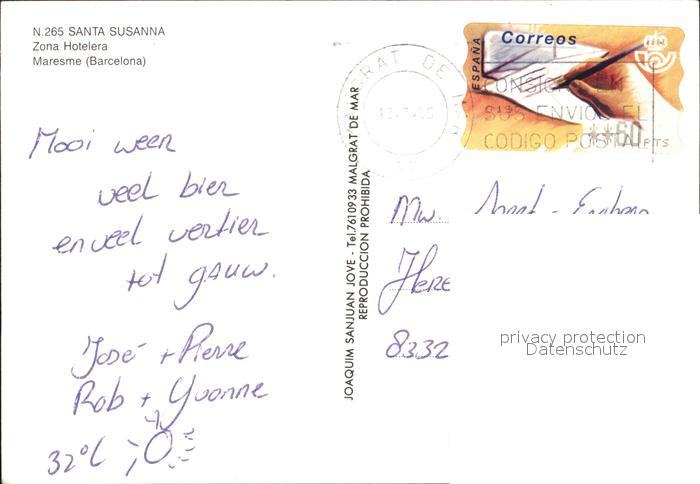 N.265 SANTA SUSANNA
Zona Hotelera
Maresme (Barcelona)
Mooi weer
veel bier
en veel vertier
tot gauw.
José + Pierre
Rob + Yvonne
32°C
JOAQUIM SANJUAN JOVE - Tel.7610933 MALGRAT DE MAR
REPRODUCCION PROHIBIDA
Correos
ESPAÑA
CONSIGNE EN
SUS ENVIOS EL
CODIGO POSTAL
**60 PTS
GRAT DE
Mw.
Here
8332
privacy protection
Datenschutz